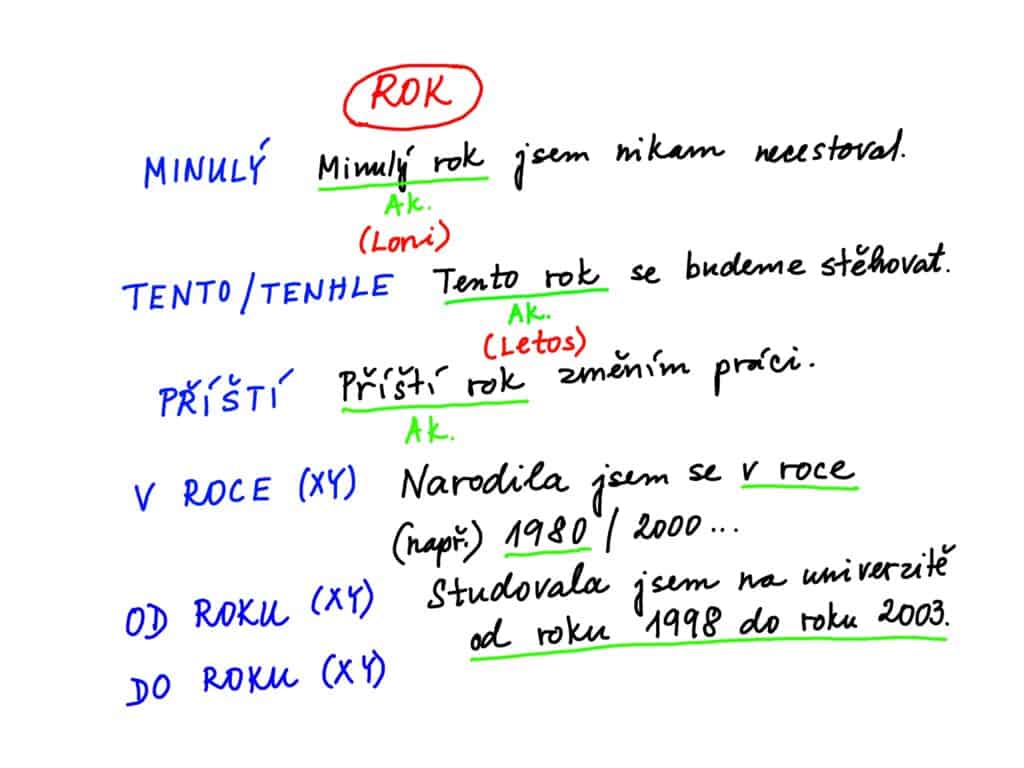 ROK
MINULÝ Minulý rok jsem nikam necestoval.
Ak.
(Loni)
TENTO/TENHLE Tento rok se budeme stěhovat.
Ak.
(Letos)
PŘÍŠTÍ Příští rok změním práci.
Ak.
V ROCE (XY) Narodila jsem se v roce
(např.) 1980 / 2000...
OD ROKU (XY) Studovala jsem na univerzitě
od roku 1998 do roku 2003.
DO ROKU (XY)